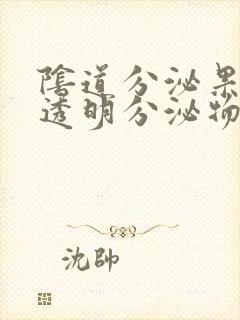 陰道分泌果
透明分泌物
沈帥